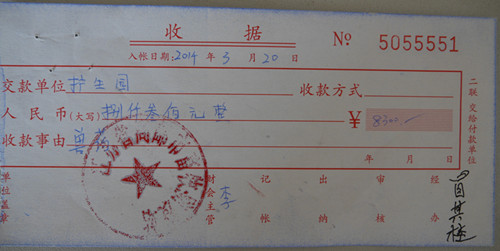 收据
№ 5055551
入帐日期:2014年3月20日
交款单位 护生园 收款方式
人民币(大写) 捌仟叁佰元整 ￥ 8300.-
收款事由
年 月 日
二联 交给付款单位
单位盖章 财会主管 李 记帐 出纳 审核 经办